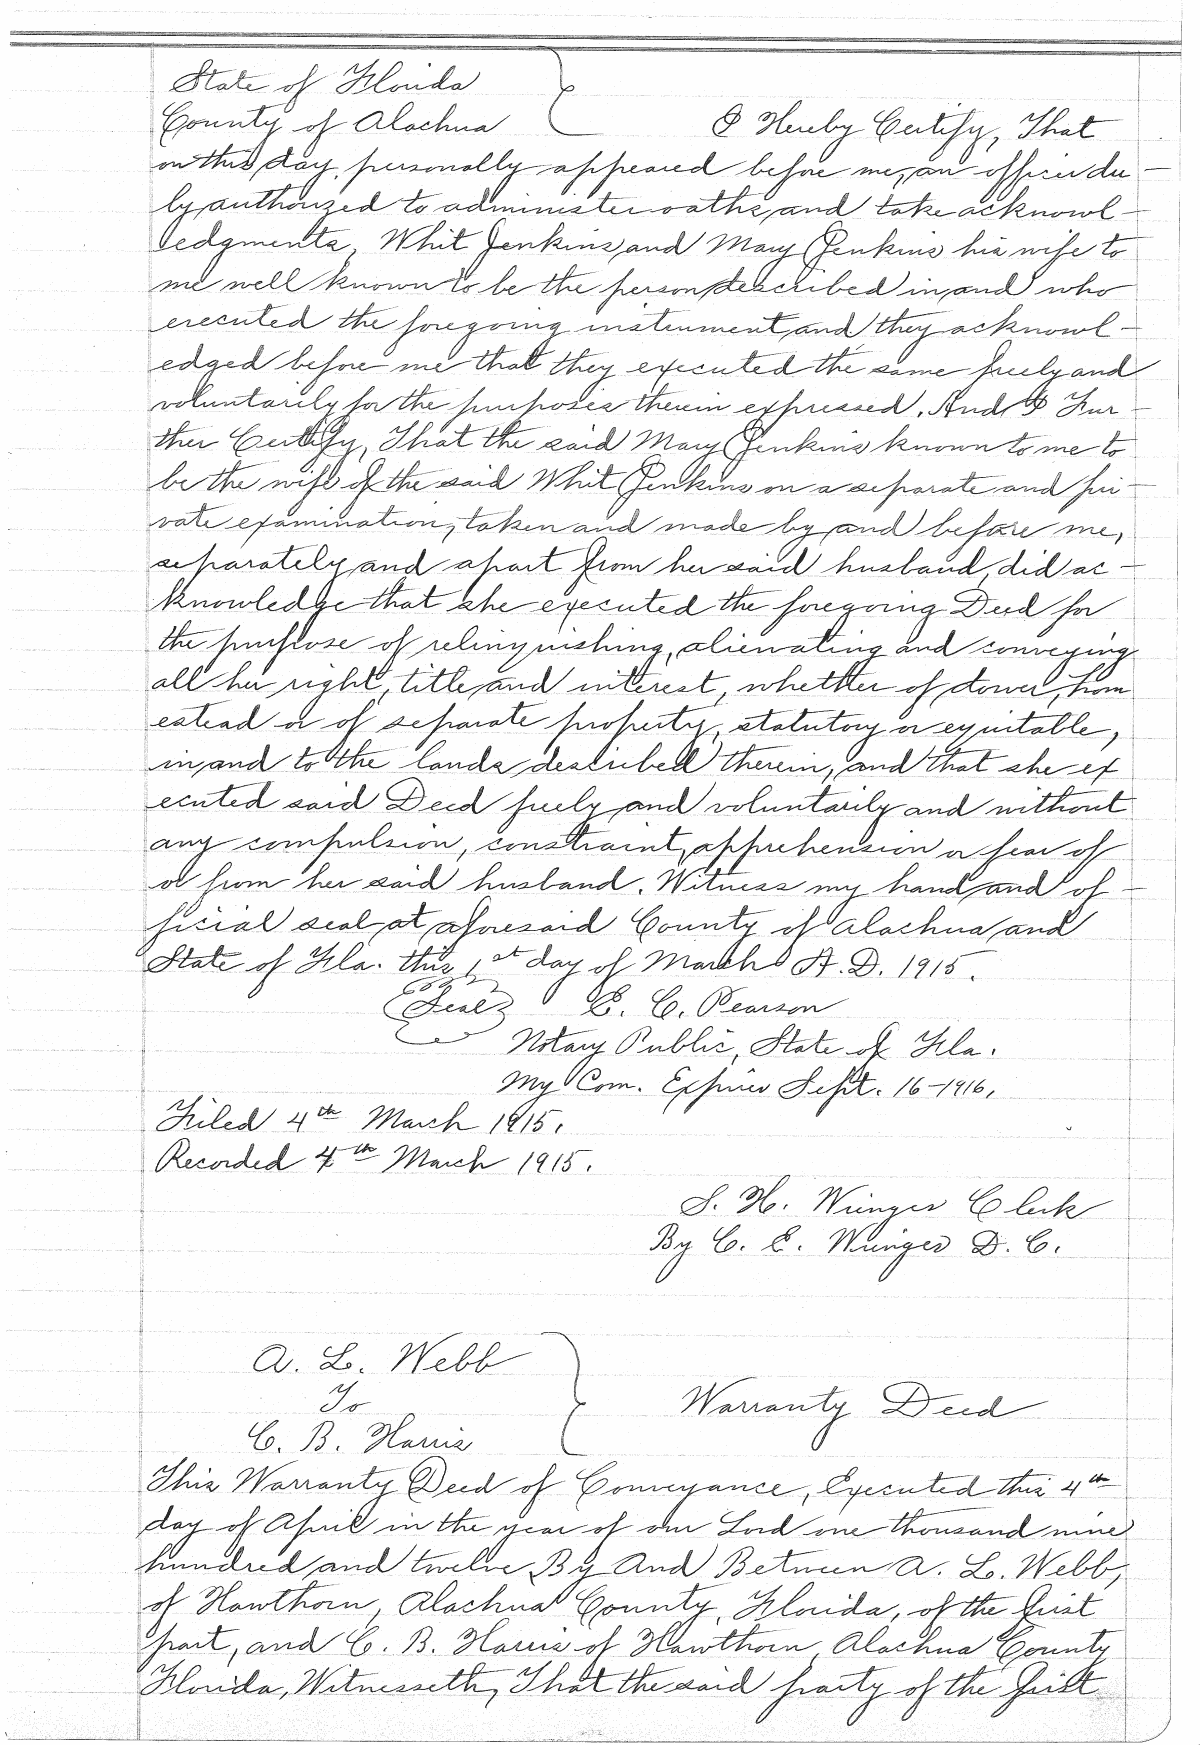 State of Florida
County of Alachua I Hereby Certify, That
on this day, personally appeared before me, an officer du-
ly authorized to administer oaths, and take acknowl-
ledgments, Whit Jenkins, and Mary Jenkins his wife to
me well known to be the person described in, and who
executed the foregoing instrument, and they acknowl-
edged before me that they executed the same freely and
voluntarily for the purposes therein expressed. And I Fur-
ther Certify, That the said Mary Jenkins known to me to
be the wife of the said Whit Jenkins on a separate and pri-
vate examination, taken and made by, and before me,
separately, and apart from her said husband, did ac-
knowledge that she executed the foregoing Deed for
the purpose of relinquishing, alienating and conveying
all her right, title, and interest, whether of dower, hom
estead or of separate property, statutory or equitable,
in, and to the lands described therein, and that she ex
ecuted said Deed freely and voluntarily and without
any compulsion, constraint, apprehension or fear of
or from her said husband. Witness my hand and of-
ficial seal at aforesaid County of Alachua, and
State of Fla. this 1st day of March A.D. 1915.
Seal E. C. Pearson
Notary Public, State of Fla.
My Com. Expires Sept. 16-1916.
Filed 4th March 1915.
Recorded 4th March 1915.
S. H. Wienges Clerk
By C. E. Wienges D. C.
A. L. Webb
To Warranty Deed
C. B. Harris
This Warranty Deed of Conveyance, Executed this 4th
day of April in the year of our Lord one thousand nine
hundred and twelve By And Between A. L. Webb,
of Hawthorn, Alachua County, Florida, of the first
part, and C. B. Harris of Hawthorn, Alachua County
Florida, Witnesseth, That the said party of the first